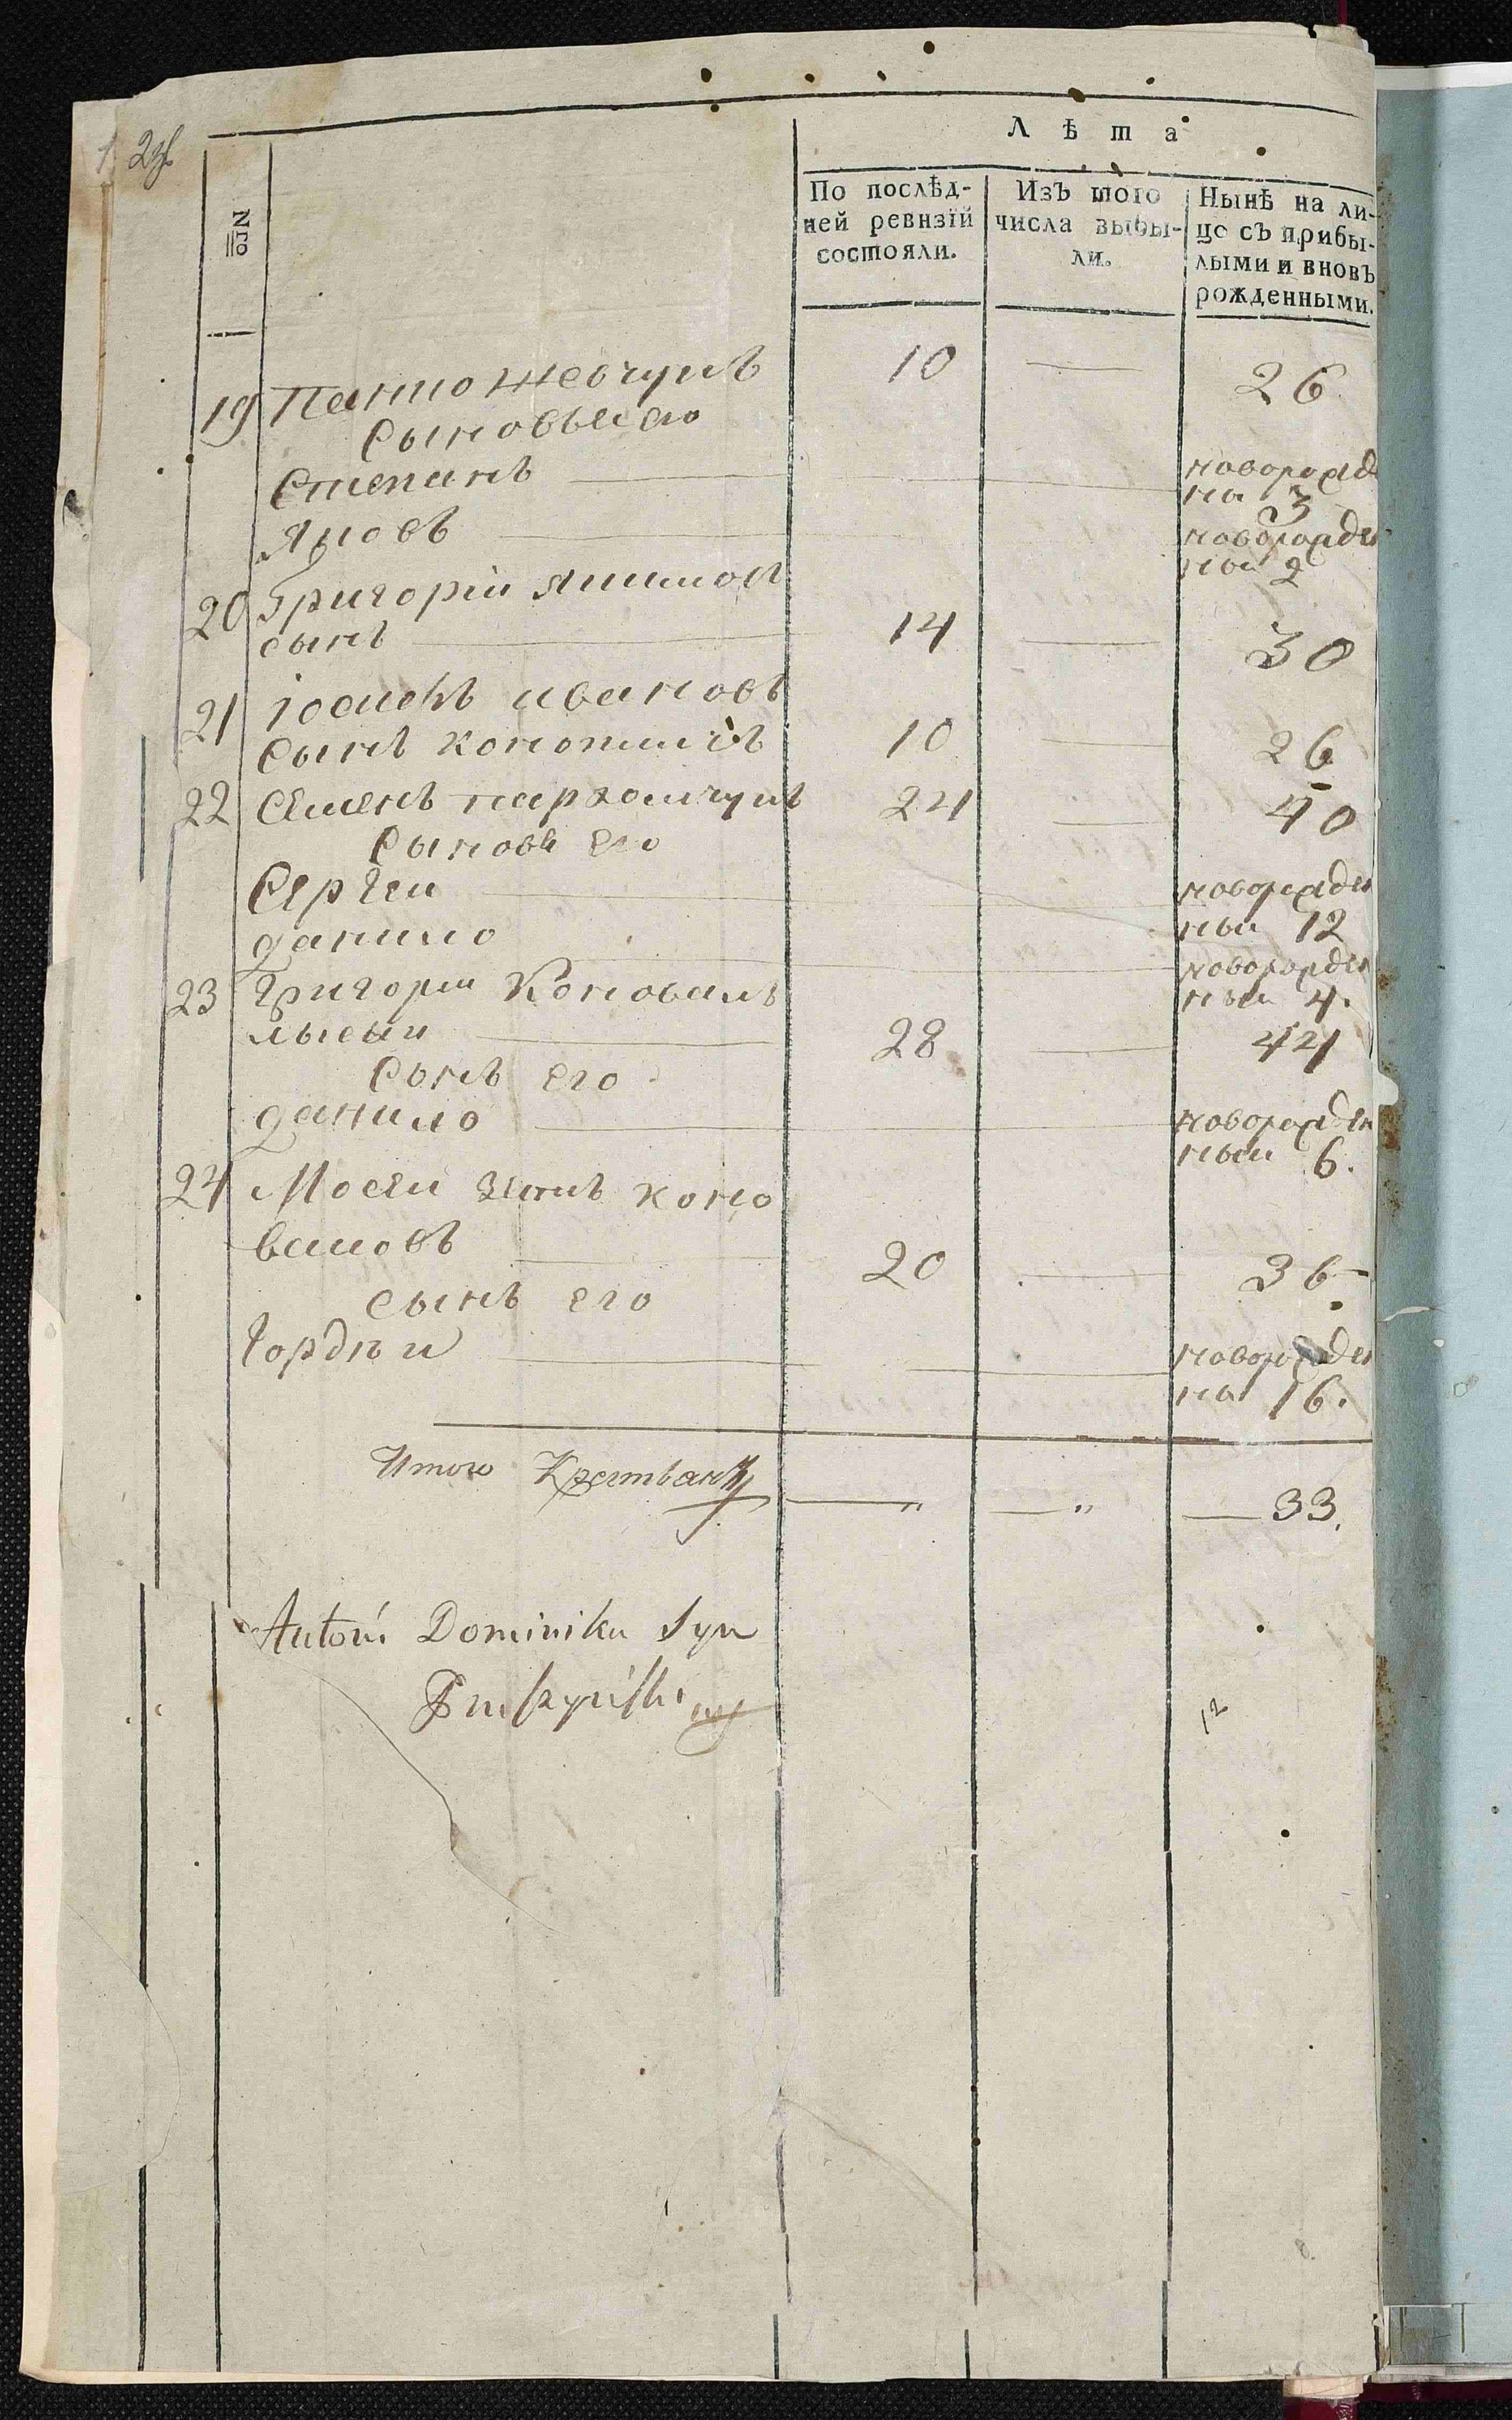 Лѣта
Nго
По послѣд-
ней ревизїй
состояли.
Изъ того
числа выбы-
ли.
Нынѣ на ли-
цо съ прибы-
лыми и вновь
рожденными.
19 10 — 26
Сыновья его
Степанъ — новорожд
на 3
Яковъ — новорожден
ный 2
20 Григорій
сынъ — 14 — 30
21 ивановъ
Сынъ 10 — 26
22 Семенъ пархомчукъ 24 — 40
Сыновя его
Сергеи — новорожден
ный 12
данило — новорожден
ный 4.
23 Григории Коновалъ
лысыи — 28 — 44
Сынъ его
данило — новорожден
ный 6.
24 Мосеи зять коно
валовъ — 20 — 36
сынъ его
Гордѣи — новорожден
на 16.
Итого Крестьянъ — " — " — 33.
Antoni Dominika Syn
12